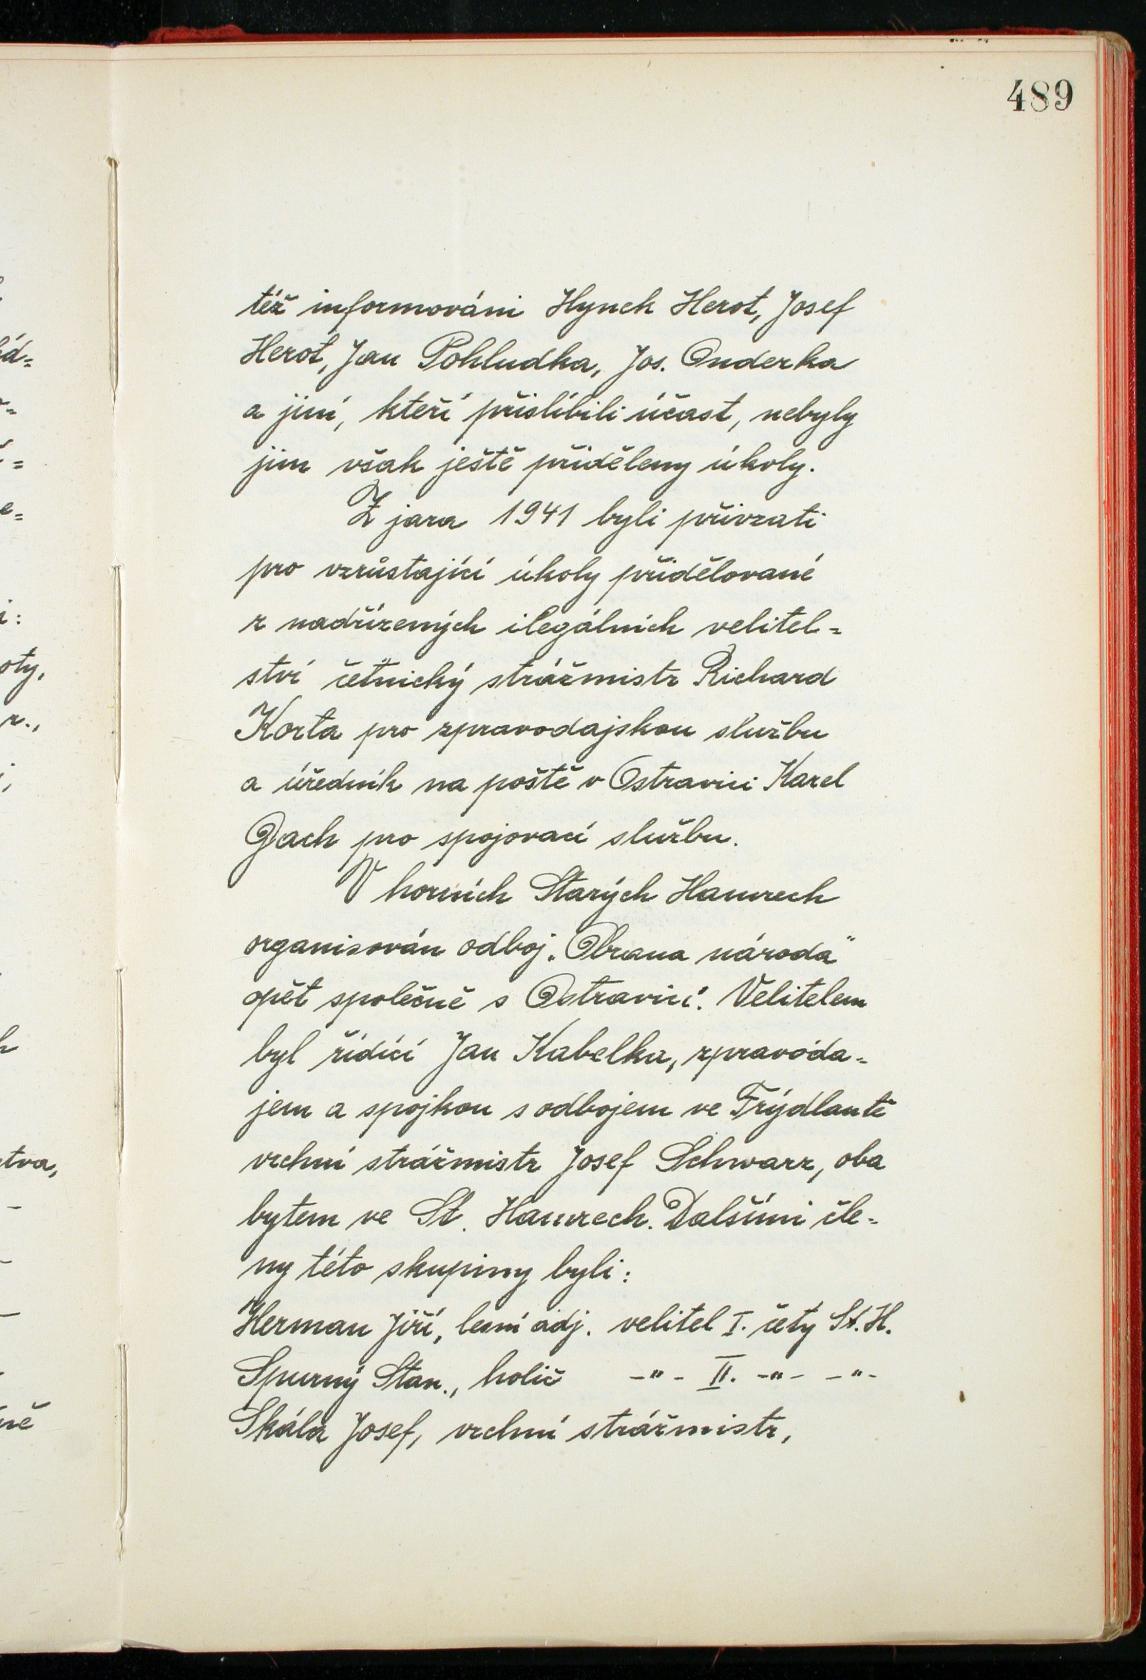 489
též informováni Hynek Herot, Josef
Herot, Jan Pohludka, Jos. Onderka
a jiní, kteří přislíbili účast, nebyly
jim však ještě přiděleny úkoly.
Z jara 1941 byli přivzati
pro vzrůstající úkoly přidělované
z nadřízených ilegálních velitel=
ství četnický strážmistr Richard
Korta pro zpravodajskou službu
a úředník na poště v Ostravici Karel
Gach pro spojovací službu.
V horních Starých Hamrech
organisován odboj „Obrana národa"
opět společně s Ostravicí. Velitelem
byl řídící Jan Kabelka, zpravoda=
jem a spojkou s odbojem ve Frýdlantě
vrchní strážmistr Josef Schwarz, oba
bytem ve St. Hamrech. Dalšími čle=
ny této skupiny byli:
Herman Jiří, lesní adj. velitel I. čety St. H.
Spurný Stan., holič -"- II. -"- -"-
Skála Josef, vrchní strážmistr,